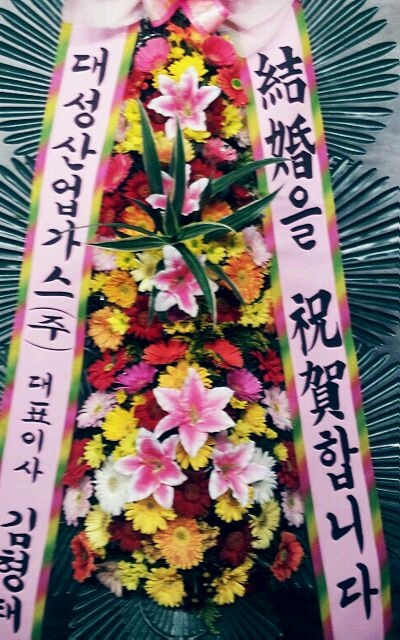 結婚을 祝賀합니다
대성산업가스(주) 대표이사 김형태